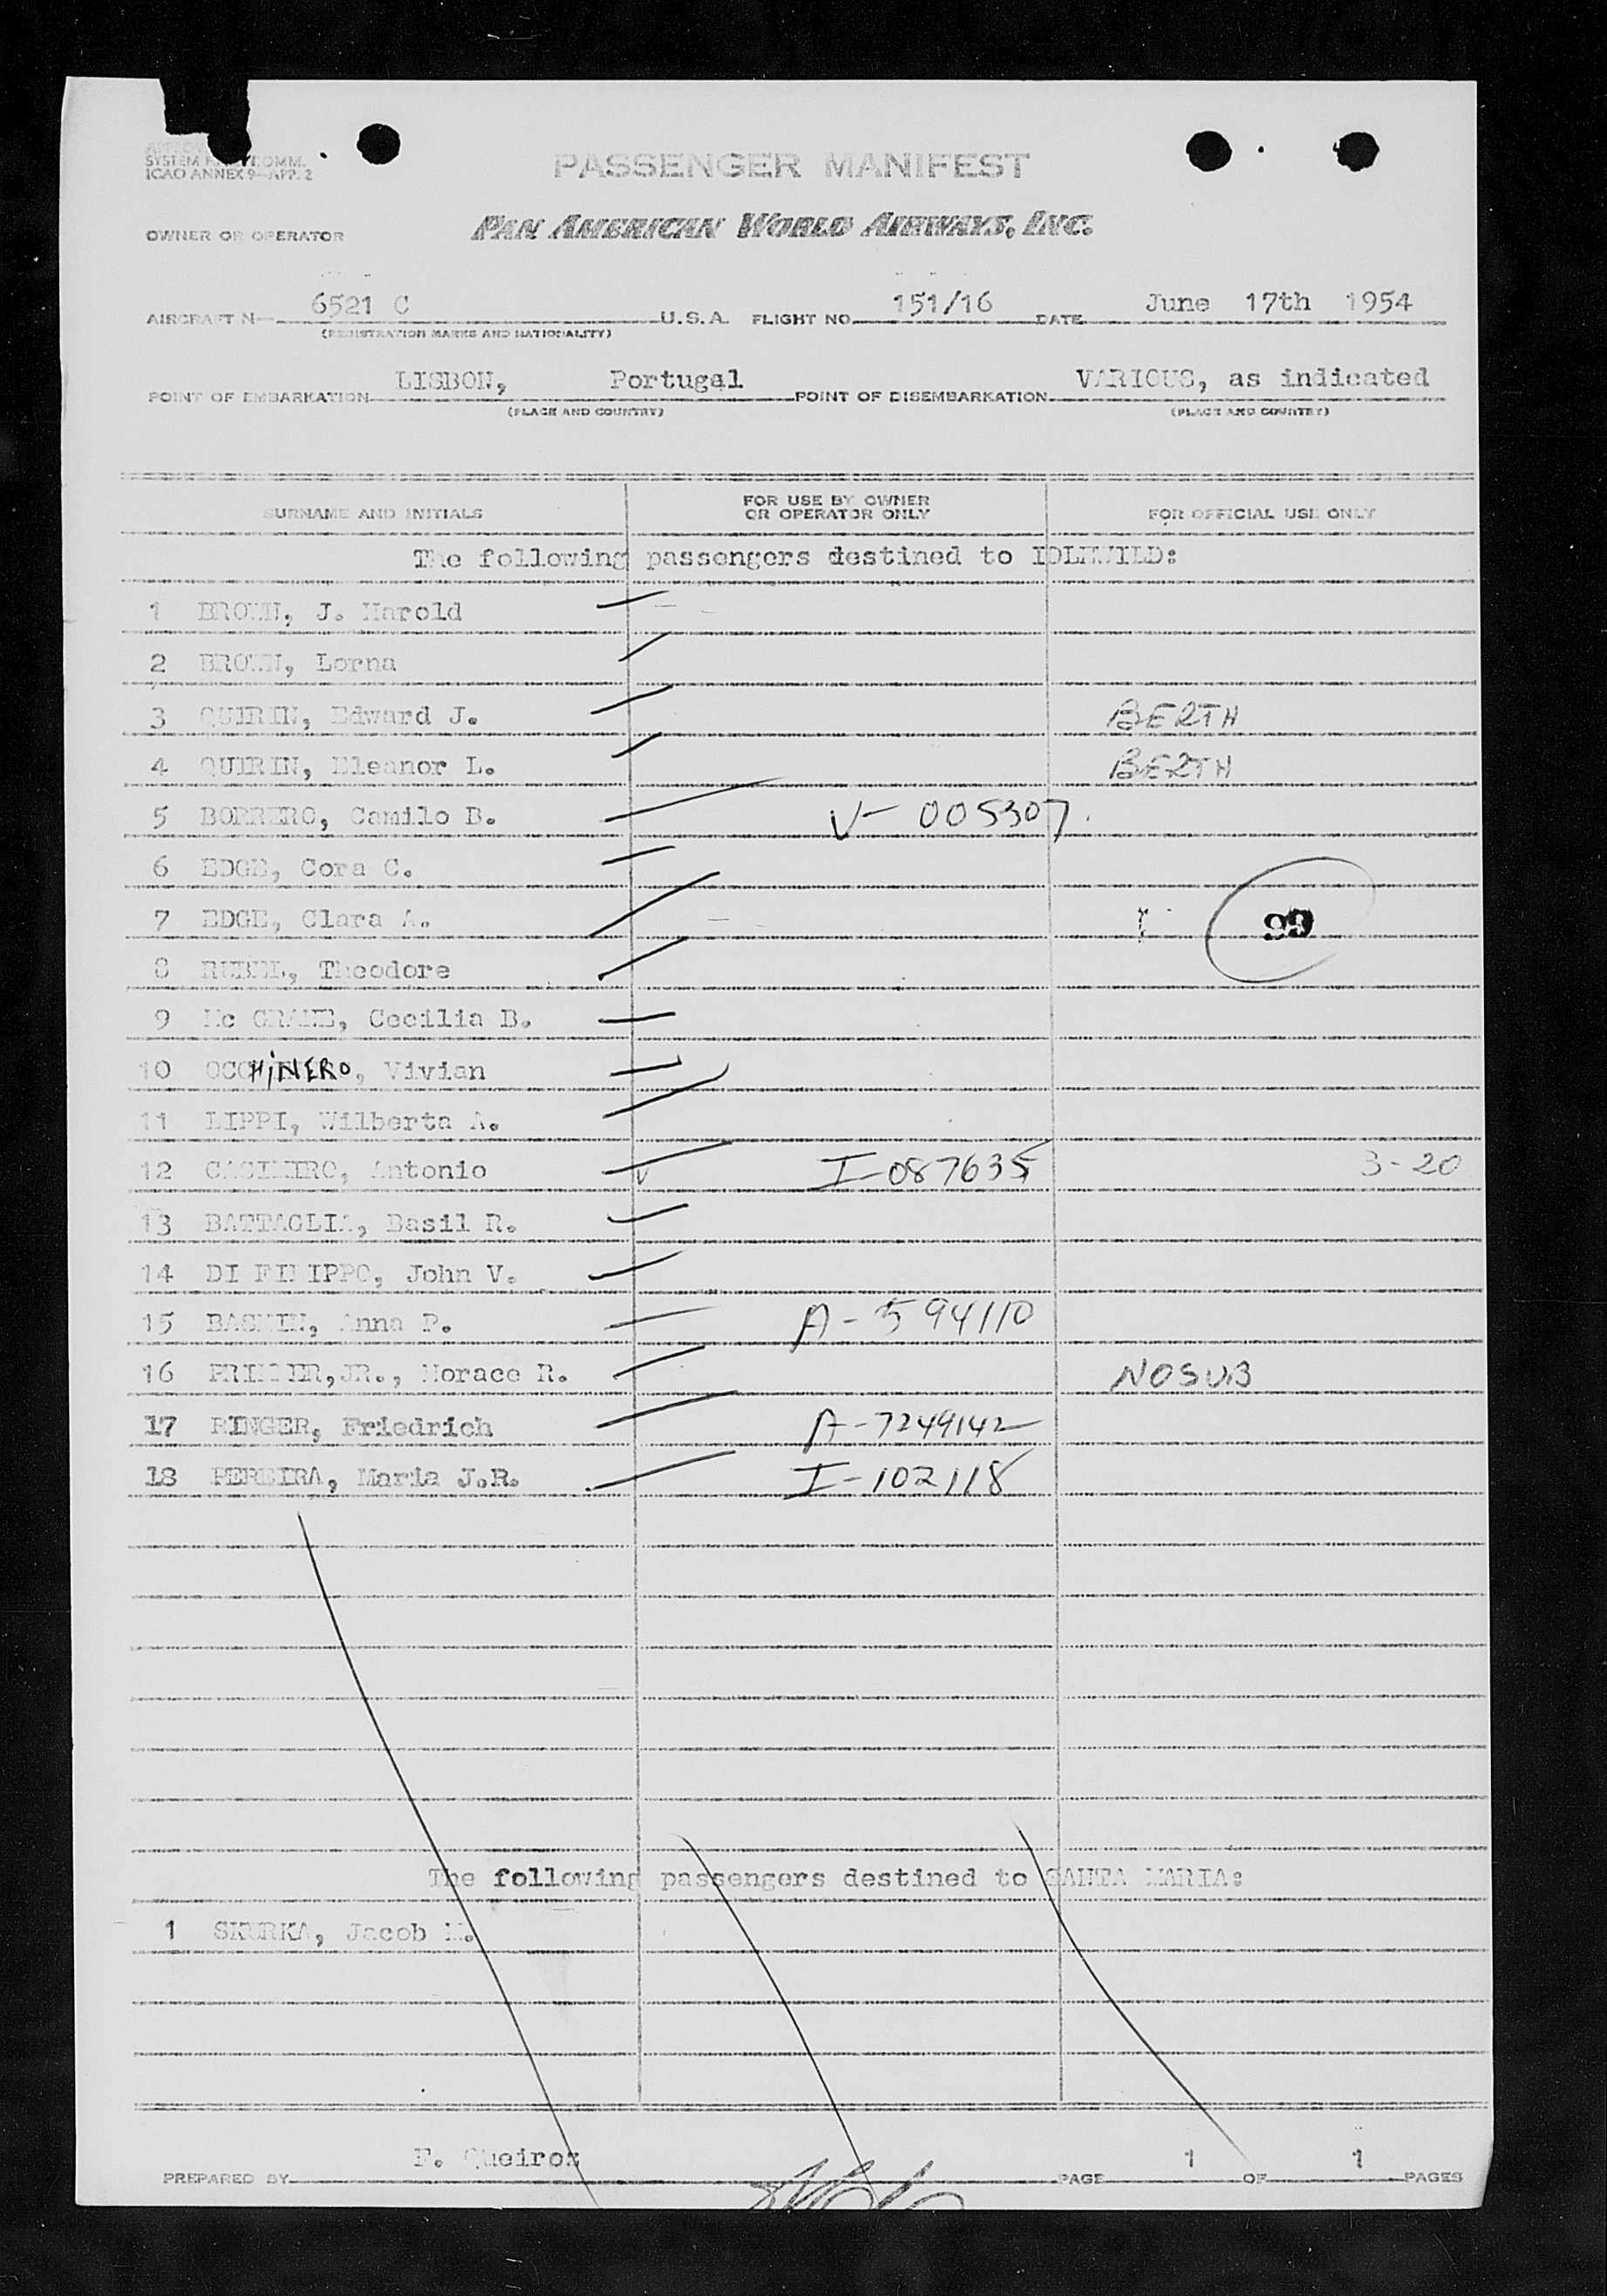 SYSTEM COMM.
ICAO ANNEX 9—APP. 2
PASSENGER MANIFEST
OWNER OR OPERATOR PAN AMERICAN WORLD AIRWAYS, INC.
AIRCRAFT N— 6521 C U.S.A. FLIGHT NO. 151/16 DATE June 17th 1954
(REGISTRATION MARKS AND NATIONALITY)
POINT OF EMBARKATION LISBON, Portugal POINT OF DISEMBARKATION VARIOUS, as indicated
(PLACE AND COUNTRY) (PLACE AND COUNTRY)
SURNAME AND INITIALS FOR USE BY OWNER OR OPERATOR ONLY FOR OFFICIAL USE ONLY
The following passengers destined to IDLEWILD:
1 BROWN, J. Harold
2 BROWN, Lorna
3 QUIRIN, Edward J. BERTH
4 QUIRIN, Eleanor L. BERTH
5 BORRERO, Camilo B. V- 005307
6 EDGE, Cora C.
7 EDGE, Clara A. 99
8 RUBEL, Theodore
9 Mc GRANE, Cecilia B.
10 OCCHiNERO, Vivian
11 LIPPI, Wilberta A.
12 CASIMIRO, Antonio I-087635 3-20
13 BATTAGLIA, Basil R.
14 DI FILIPPO, John V.
15 Anna P. A-594110
16 JR., Horace R. NOSUB
17 RINGER, Friedrich A-7249142
18 PEREIRA, Maria J.R. I-102118
The following passengers destined to SANTA MARIA:
1 SKURKA, Jacob M.
PREPARED BY F. Queiroz PAGE 1 OF 1 PAGES